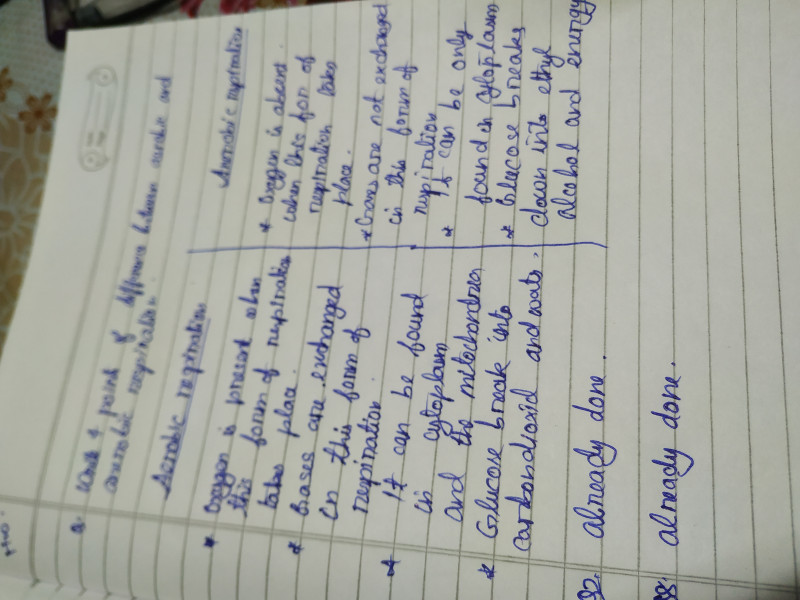 Q. Write 4 point of difference between aerobic and
anaerobic respiration.
Aerobic respiration
* Oxygen is present when
this form of respiration
takes place.
* Gases are exchanged
in this form of
respiration.
* It can be found
in cytoplasm
and the mitochondria
* Glucose break into
carbondioxid and wats.
Anerobic respiration
* Oxygen is absent
when this for of
respiration takes
place.
* Gases are not exchanged
in this form of
respiration
* It can be only
found in cytoplasm
* Glucose breaks
down into ethyl
alcohol and energy
32. already done.
38. already done.